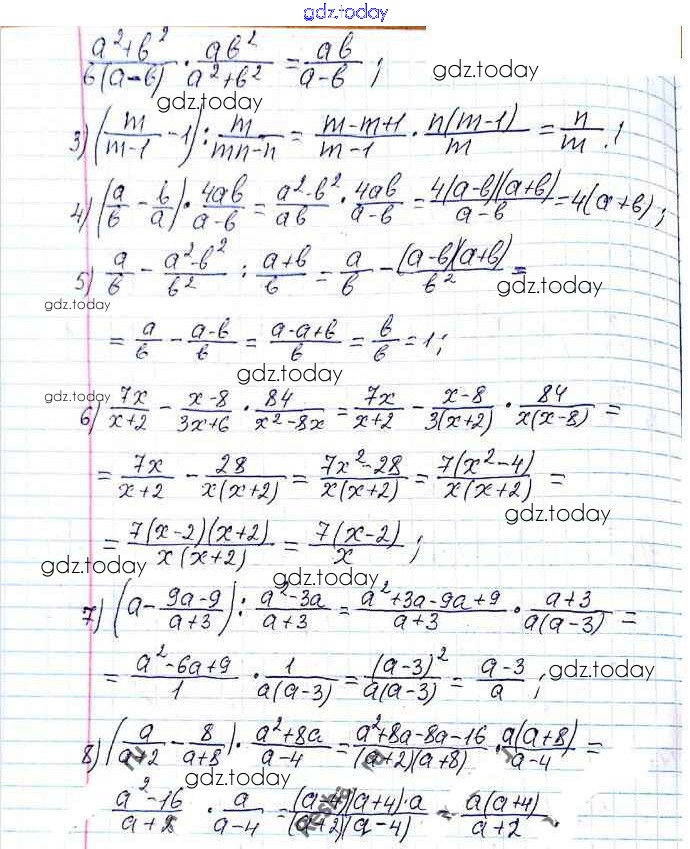 gdz.today
(a²+b²)/(b(a-b)) · (ab²)/(a²+b²) = (ab)/(a-b) ; gdz.today
gdz.today
3) (m/(m-1) - 1) : m/(mn-n) = (m-m+1)/(m-1) · (n(m-1))/m = n/m ;
4) (a/b - b/a) · 4ab/(a-b) = (a²-b²)/(ab) · 4ab/(a-b) = (4(a-b)(a+b))/(a-b) = 4(a+b) ;
5) a/b - (a²-b²)/b² : (a+b)/b = a/b - ((a-b)(a+b))/b² =
gdz.today gdz.today
= a/b - (a-b)/b = (a-a+b)/b = b/b = 1 ;
gdz.today
gdz.today
6) 7x/(x+2) - (x-8)/(3x+6) · 84/(x²-8x) = 7x/(x+2) - (x-8)/(3(x+2)) · 84/(x(x-8)) =
= 7x/(x+2) - 28/(x(x+2)) = (7x²-28)/(x(x+2)) = (7(x²-4))/(x(x+2)) =
gdz.today
= (7(x-2)(x+2))/(x(x+2)) = (7(x-2))/x ;
gdz.today gdz.today
7) (a - (9a-9)/(a+3)) : (a²-3a)/(a+3) = (a²+3a-9a+9)/(a+3) · (a+3)/(a(a-3)) =
= (a²-6a+9)/1 · 1/(a(a-3)) = (a-3)²/(a(a-3)) = (a-3)/a ; gdz.today
8) (a/(a+2) - 8/(a+8)) · (a²+8a)/(a-4) = (a²+8a-8a-16)/((a+2)(a+8)) · (a(a+8))/(a-4) =
gdz.today
(a²-16)/(a+2) · a/(a-4) = ((a-4)(a+4)·a)/((a+2)(a-4)) = (a(a+4))/(a+2) .